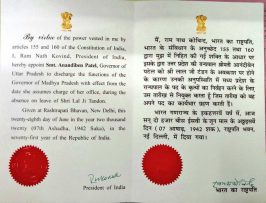 By virtue of the power vested in me by
articles 155 and 160 of the Constitution of India,
I, Ram Nath Kovind, President of India,
hereby appoint Smt. Anandiben Patel, Governor of
Uttar Pradesh to discharge the functions of the
Governor of Madhya Pradesh with effect from the
date she assumes charge of her office, during the
absence on leave of Shri Lal Ji Tandon.
Given at Rashtrapati Bhavan, New Delhi, this
twenty-eighth day of June in the year two thousand
twenty (07th Ashadha, 1942 Saka), in the
seventy-first year of the Republic of India.
President of India
मैं, राम नाथ कोविन्द, भारत का राष्ट्रपति,
भारत के संविधान के अनुच्छेद 155 तथा 160
द्वारा मुझ में निहित की गई शक्ति के आधार पर
उत्तर प्रदेश की राज्यपाल श्रीमती आनंदीबेन
पटेल को श्री लाल जी टंडन के अवकाश पर
होने के कारण उनकी अनुपस्थिति में मध्य प्रदेश
के राज्यपाल के कृत्यों का निर्वहन करने के लिए
उस तारीख से नियुक्त करता हूं जिस तारीख को वह
अपने पद का कार्यभार ग्रहण करती हैं।
भारत गणराज्य के इकहत्तरवें वर्ष में, आज
सन् दो हजार बीस ईसवी के जून मास के अट्ठाइसवें
दिन (07 आषाढ़, 1942 शक), राष्ट्रपति भवन,
नई दिल्ली, में दिया गया।